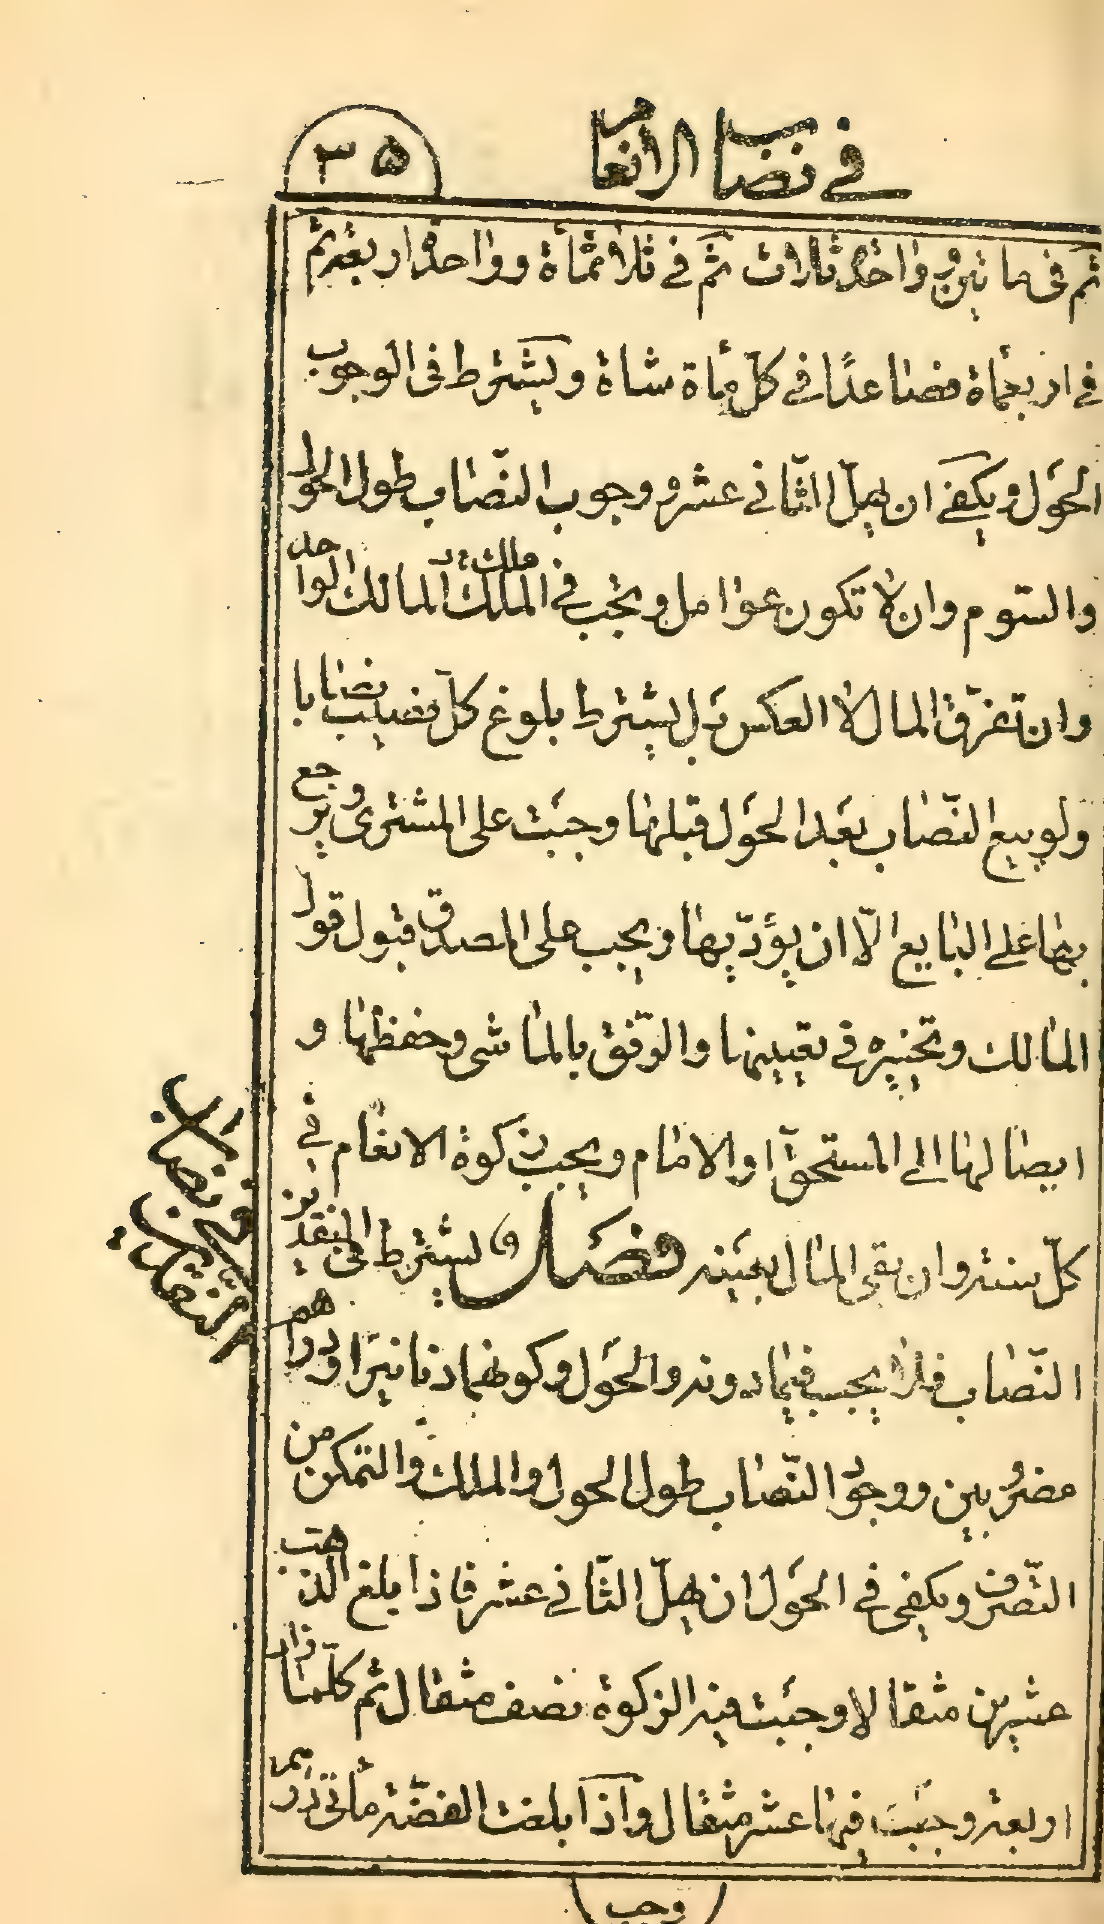 في نصاب الانعام
٣٥
ثم في مأتين وواحدة ثلاث ثم في ثلاثمأة وواحدة اربعة ثم
في اربعمأة فصاعدًا في كلّ مأة شاة ويشترط في الوجوب
الحَول ويكفي ان يهلّ الثّاني عشر ووجوب النّصاب طول الحول
والسّوم وان لا تكون عوامل ويجب في الملك ملك المالك الواحد
وان تفرّق المال لا العكس بَل يشترط بلوغ كلّ نصيب نصابا
ولو بيع النّصاب بَعد الحَول قبلها وجبَت على المشترى ويرجع
بها على البايع الّا ان يؤدّيها ويجب على المصدق قبول قول
المالك وتخييره في تعيينها والرّفق بالماشى وحفظها و
ايصالها الى المستحقّ او الامام ويجب زكوة الانعام في
كلّ سنة وان بقى المال بعَينه فصَل ق يشترط في النقدين
النّصاب فلا يجب فيما دونه والحَول وكونهما دنانيرَ او دراهم
مضروبين ووجود النّصاب طول الحول والملك والتمكن من
التّصرف ويكفى في الحَول ان يهلّ الثّاني عشر فاذا بلغ الذهب
عشرين مثقالا وجبَت فيه الزكوة نصف مثقال ثم كلّما زاد
اربعة وجبَت فيها عشر مثقال واذا بلغت الفضّة مأتى درهم
وجب
في نصاب النقدين